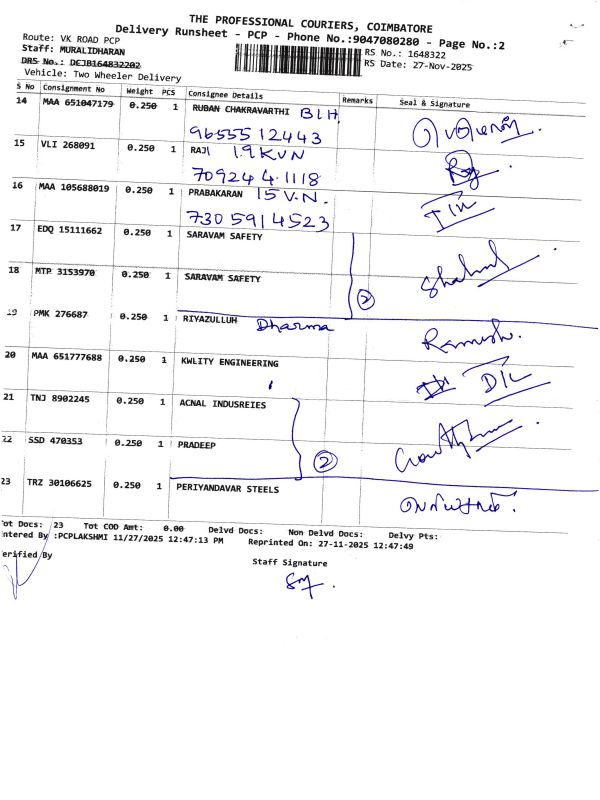 THE PROFESSIONAL COURIERS, COIMBATORE
Delivery Runsheet - PCP - Phone No.:9047080280 - Page No.:2
Route: VK ROAD PCP
RS No.: 1648322
Staff: MURALIDHARAN
RS Date: 27-Nov-2025
DRS No.: DCJB164832202
Vehicle: Two Wheeler Delivery
S No Consignment No Weight PCS Consignee Details Remarks Seal & Signature
14 MAA 651047179 0.250 1 RUBAN CHAKRAVARTHI BLH
9655512443
15 VLI 268091 0.250 1 RAJI 19KVN
7092441118
16 MAA 105688019 0.250 1 PRABAKARAN 15 V.N.
7305914523
17 EDQ 15111662 0.250 1 SARAVAM SAFETY
18 MTP 3153970 0.250 1 SARAVAM SAFETY
2
19 PMK 276687 0.250 1 RIYAZULLUH Dharma Ramesh.
20 MAA 651777688 0.250 1 KWLITY ENGINEERING D/L
21 TNJ 8902245 0.250 1 ACNAL INDUSREIES
22 SSD 470353 0.250 1 PRADEEP
2
23 TRZ 30106625 0.250 1 PERIYANDAVAR STEELS
Tot Docs: 23 Tot COD Amt: 0.00 Delvd Docs: Non Delvd Docs: Delvy Pts:
Entered By :PCPLAKSHMI 11/27/2025 12:47:13 PM Reprinted On: 27-11-2025 12:47:49
Verified By
Staff Signature